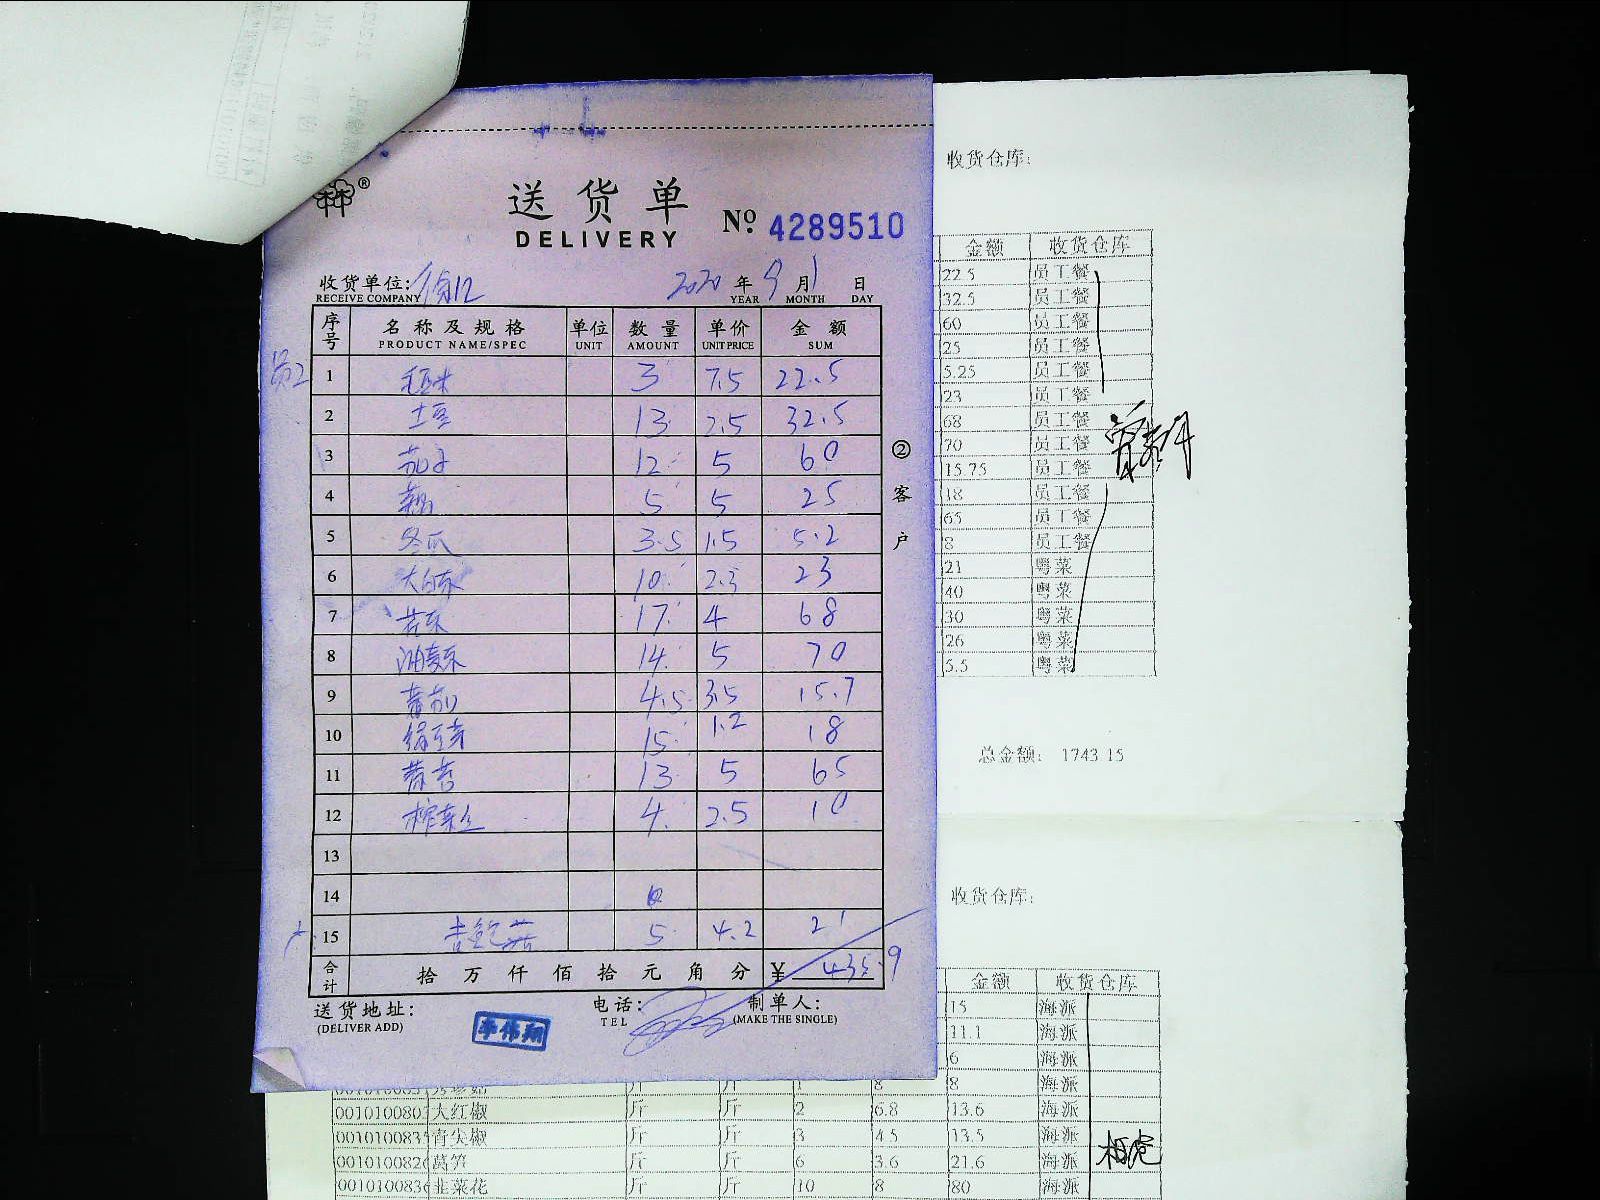 送货单
DELIVERY
No. 4289510
收货单位: 2020 年 9 月 1 日
RECEIVE COMPANY YEAR MONTH DAY
序号 名称及规格 单位 数量 单价 金额
PRODUCT NAME/SPEC UNIT AMOUNT UNIT PRICE SUM
员工
1 3 7.5 22.5
2 土豆 13 2.5 32.5
3 茄子 12 5 60
4 5 5 25
5 冬瓜 3.5 1.5 5.2
6 大白菜 10 2.3 23
7 17 4 68
8 油麦菜 14 5 70
9 蕃茄 4.5 3.5 15.7
10 15 1.2 18
11 13 5 65
12 榨菜丝 4 2.5 10
13
14
15 杏鲍菇 5 4.2 21
合计 拾 万 仟 佰 拾 元 角 分 ¥ 435.9
送货地址: 电话: 制单人:
(DELIVER ADD) TEL (MAKE THE SINGLE)
李伟翔
②客户
收货仓库:
金额 收货仓库
22.5 员工餐
32.5 员工餐
60 员工餐
25 员工餐
5.25 员工餐
23 员工餐
68 员工餐
70 员工餐
15.75 员工餐
18 员工餐
65 员工餐
8 员工餐
21 粤菜
40 粤菜
30 粤菜
26 粤菜
5.5 粤菜
总金额: 1743.15
收货仓库:
金额 收货仓库
15 海派
11.1 海派
6 海派
斤 斤 1 8 8 海派
0010100803 大红椒 斤 斤 2 6.8 13.6 海派
001010083 青尖椒 斤 斤 3 4.5 13.5 海派
001010082 莴笋 斤 斤 6 3.6 21.6 海派
001010083 韭菜花 斤 斤 10 8 80 海派